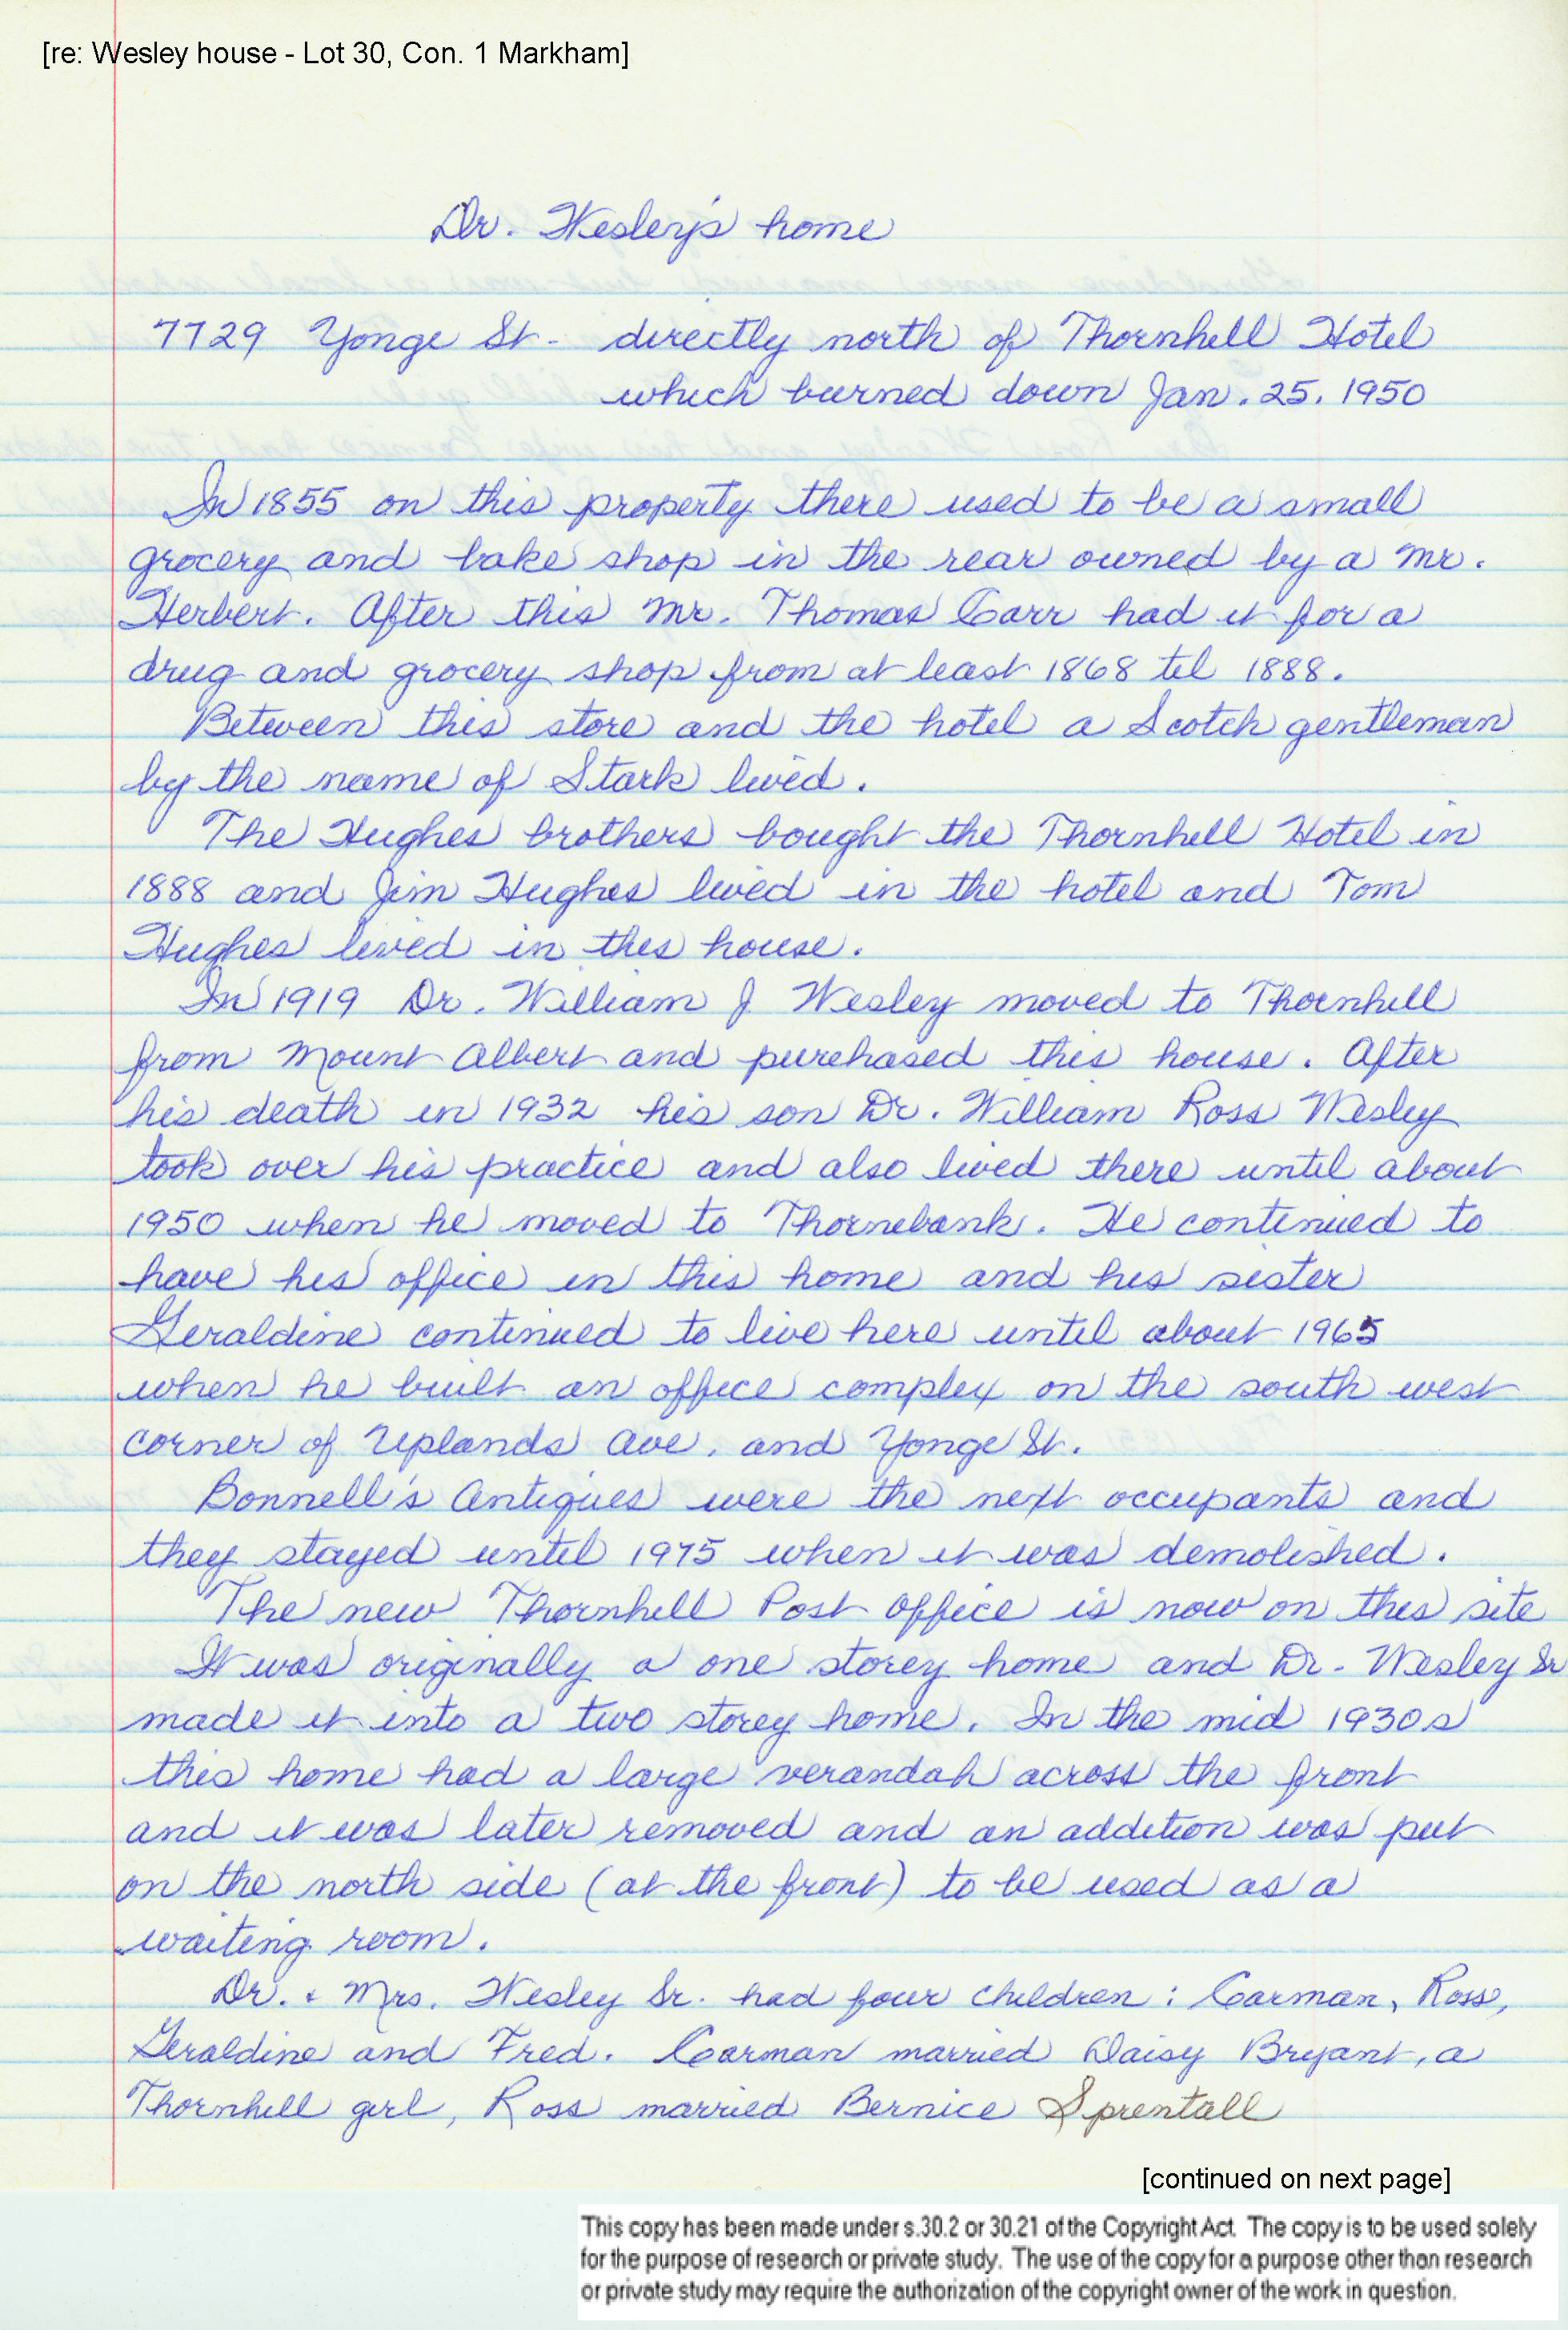 [re: Wesley house - Lot 30, Con. 1 Markham]
Dr. Wesley's home
7729 Yonge St - directly north of Thornhill Hotel
which burned down Jan. 25. 1950
In 1855 on this property there used to be a small
grocery and bake shop in the rear owned by a Mr.
Herbert. After this Mr. Thomas Carr had it for a
drug and grocery shop from at least 1868 til 1888.
Between this store and the hotel a Scotch gentleman
by the name of Stark lived.
The Hughes brothers bought the Thornhill Hotel in
1888 and Jim Hughes lived in the hotel and Tom
Hughes lived in this house.
In 1919 Dr. William J Wesley moved to Thornhill
from Mount Albert and purchased this house. After
his death in 1932 his son Dr. William Ross Wesley
took over his practice and also lived there until about
1950 when he moved to Thornebank. He continued to
have his office in this home and his sister
Geraldine continued to live here until about 1965
when he built an office complex on the south west
corner of Uplands Ave. and Yonge St.
Bonnell's Antiques were the next occupants and
they stayed until 1975 when it was demolished.
The new Thornhill Post Office is now on this site
It was originally a one storey home and Dr. Wesley Sr
made it into a two storey home. In the mid 1930s
this home had a large verandah across the front
and it was later removed and an addition was put
on the north side (at the front) to be used as a
waiting room.
Dr. & Mrs. Wesley Sr. had four children: Carman, Ross,
Geraldine and Fred. Carman married Daisy Bryant, a
Thornhill girl, Ross married Bernice Sprentall
[continued on next page]
This copy has been made under s.30.2 or 30.21 of the Copyright Act. The copy is to be used solely
for the purpose of research or private study. The use of the copy for a purpose other than research
or private study may require the authorization of the copyright owner of the work in question.